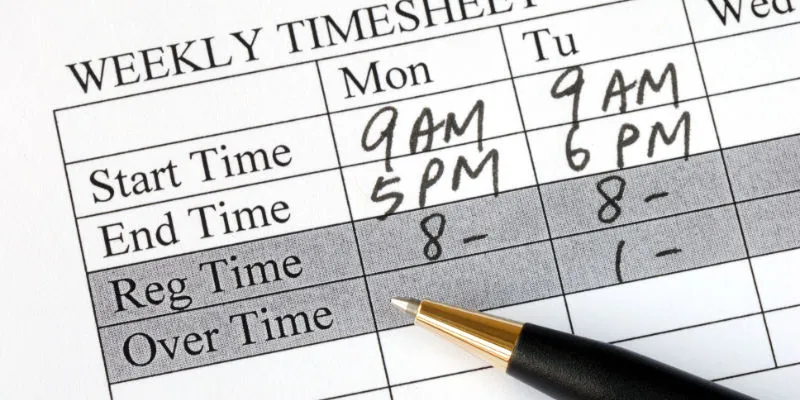 WEEKLY TIMESHEET
Mon Tu Wed
Start Time 9 AM 9 AM
End Time 5 PM 6 PM
Reg Time 8 - 8 -
Over Time 1 -